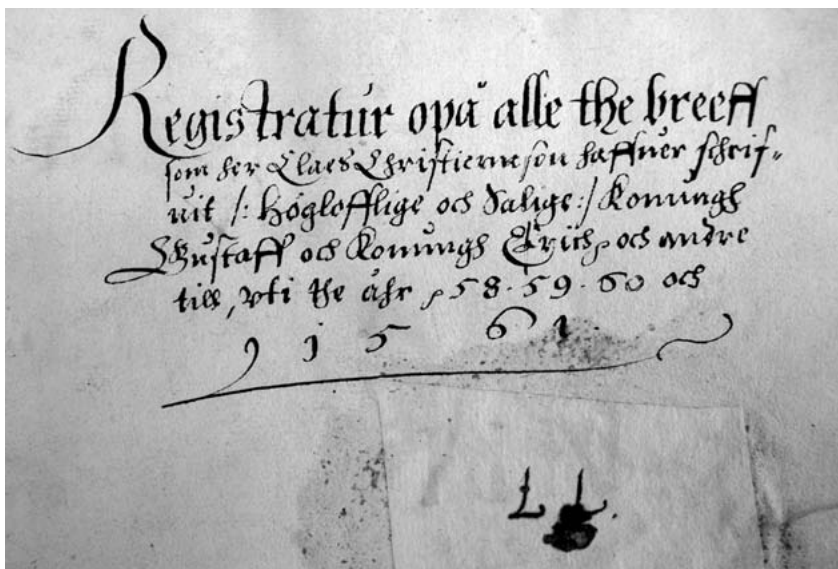 Registratur opå alle the breeff
som her Claes Christiernson haffuer schrif-
uit /: Höglofflige och Salige :/ Konungh
Gustaff och Konungh Erich, och andre
till, vti the åhr , 58 . 59 . 60 och
1561.
L L.